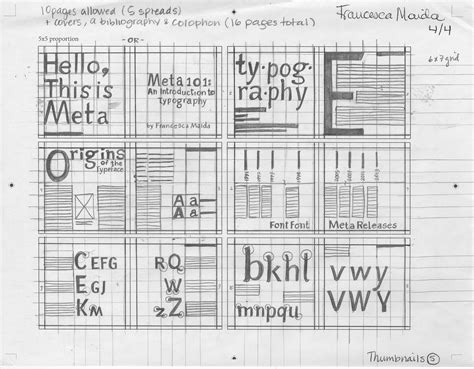 10 pages allowed (5 spreads)
+ covers, a bibliography & colophon (16 pages total)
Francesca Maida
4/4
5x5 proportion
- OR -
6x7 grid
Hello,
This is
Meta
Meta 101:
An Introduction to
Typography
by Francesca Maida
ty·pog·
ra·phy
E
Origins
of the
Typeface
Aa
Aa
Font Font
Meta Releases
C EFG
E GJ
K m
R Q
W
z Z
bkhl
mnpqu
vwy
VWY
Thumbnails 5